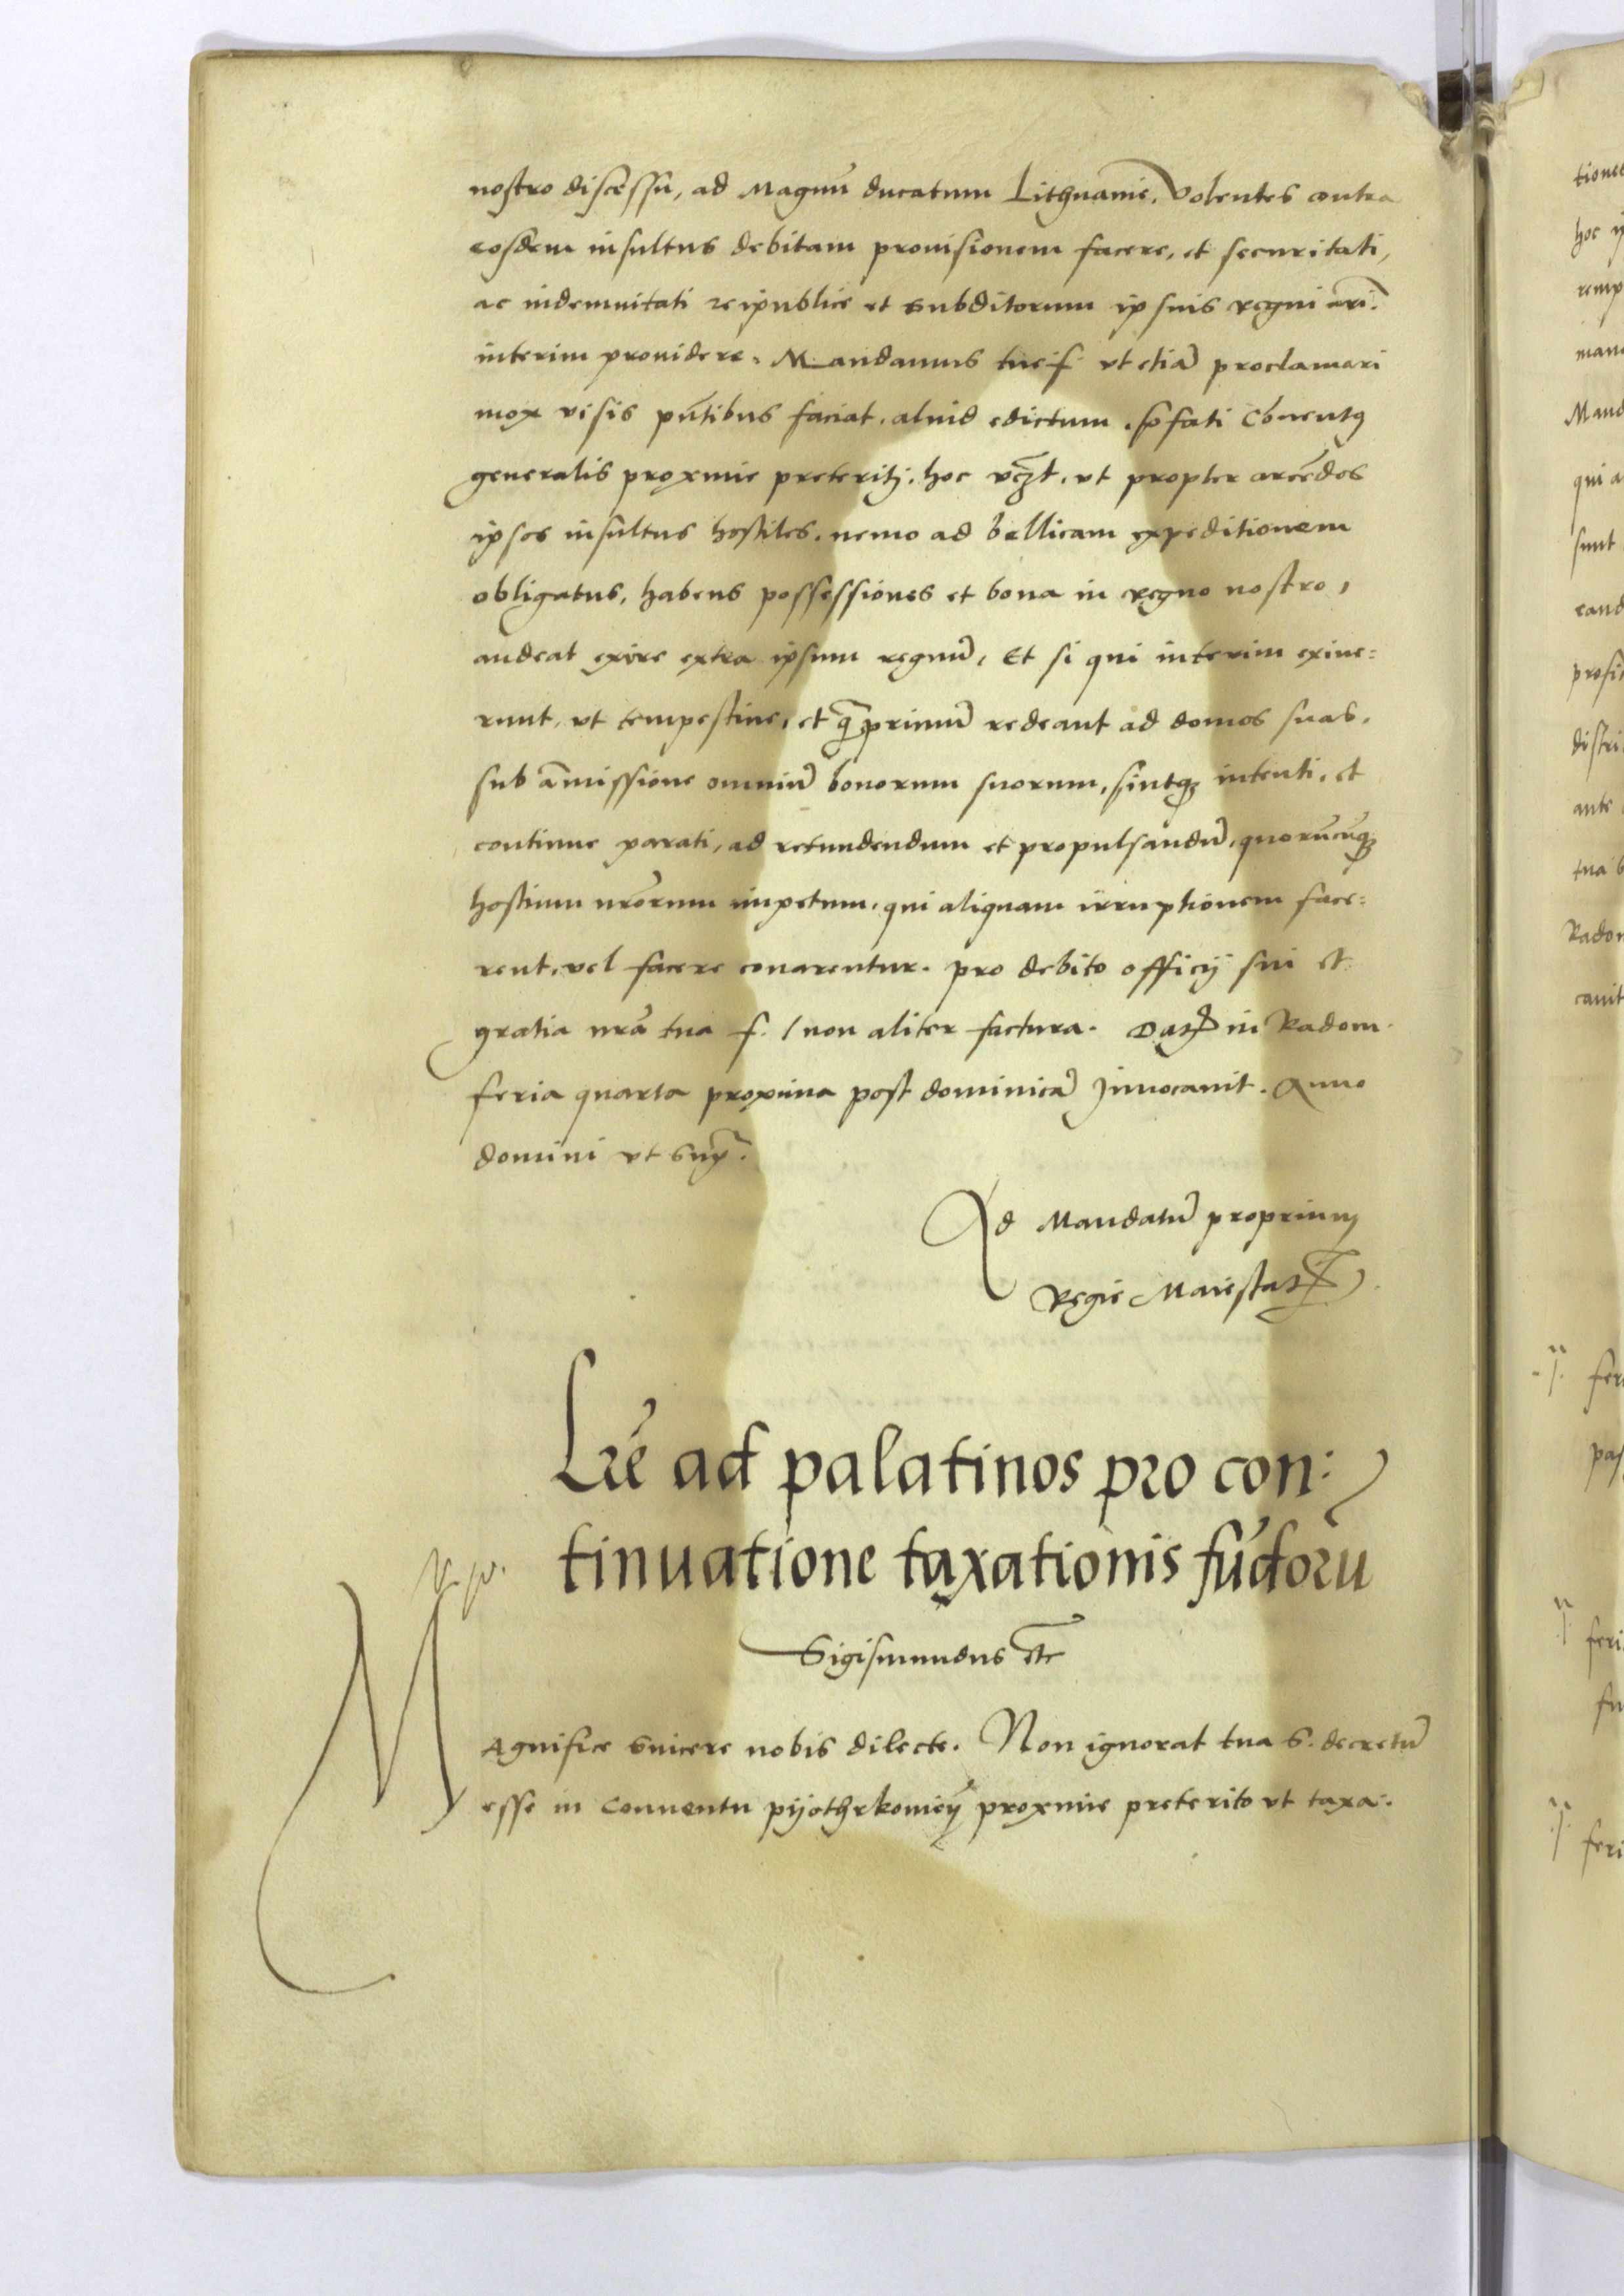 nostro discessu, ad Magnū ducatum Lithuanie. Volentes contra
eosdem insultus debitam prouisionem facere, et securitati,
ac indemnitati reipublice et subditorum ipsius regni nr̄i.
interim prouidere. Mandamus tue s. vt etiā proclamari
mox visis pn̄tibus faciat. aliud edictum. p̄fati Cōuentꝯ
generalis proxime preteritj. hoc vcz̄t. vt propter arcēdos
ipsos insultus hostiles. nemo ad bellicam expeditionem
obligatus, habens possessiones et bona in regno nostro,
audeat exire extra ipsum regnū, Et si qui interim exiue=
runt, vt tempestiue, et q̄primū redeant ad domos suas.
sub āmissione omniū bonorum suorum, sintqꝫ intenti, et
continue parati, ad retundendum et propulsandū, quorūcūqꝫ
hostium nr̄orum impetum. qui aliquam irruptionem face=
rent, vel facere conarentur. pro debito officij sui et
gratia nr̄a tua s. non aliter factura. Datꝭ in Radom.
feria quarta proxima post dominicā Jnuocauit. Anno
domini vt sup̄.
Ad Mandatū proprium
Regie Maiestatꝭ
Lr̄e ad palatinos pro con:
tinuatione taxationis fūdorū
Sigismundus etc̄
Magnifice sincere nobis dilecte. Non ignorat tua s. decretū
esse in conuentu pijothrkowieñ proxime preterito vt taxa:
tiones
hoc
remp
Mand
qui a
sunt
cand
profi
distri
ante
tua
Radom
feri
feri